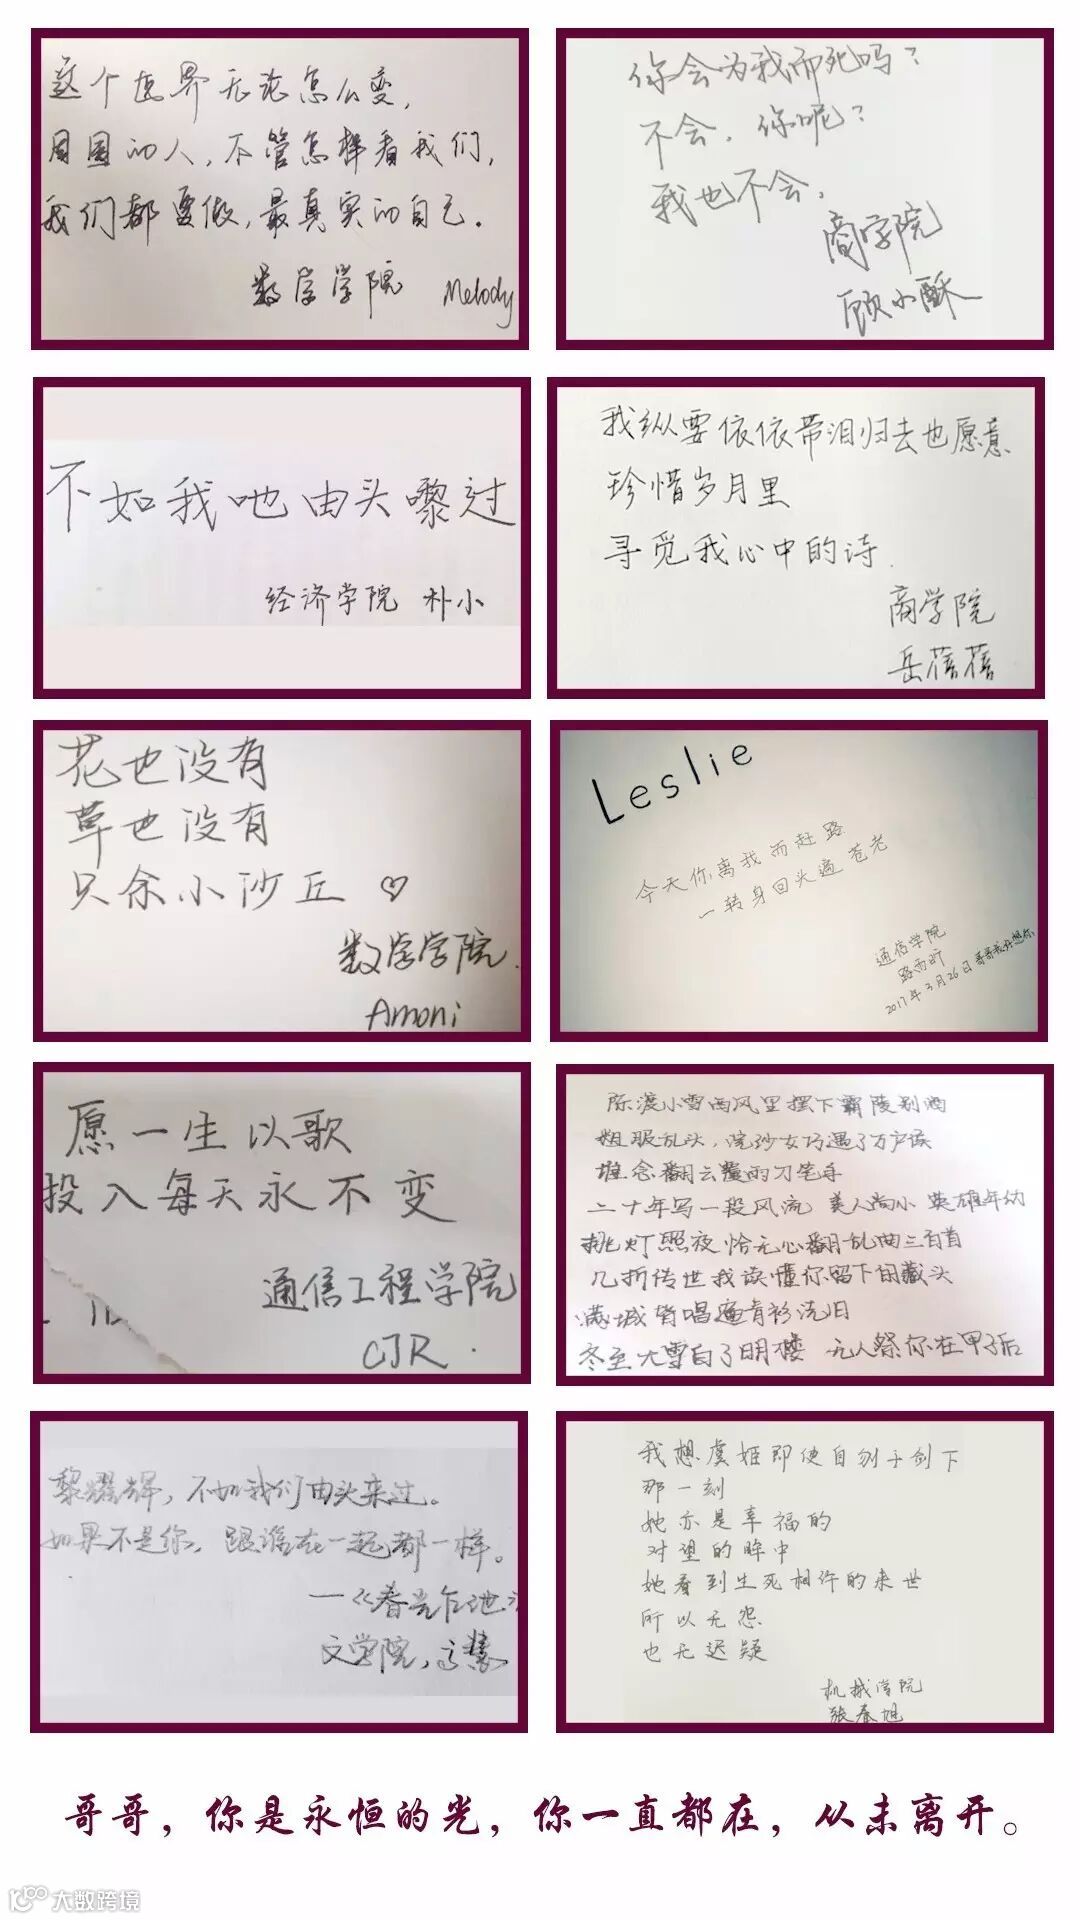 这个世界无论怎么变，
周围的人，不管怎样看我们，
我们都要做，最真实的自己。
数学学院 Melody
你会为我而死吗？
不会，你呢？
我也不会，
商学院
顾小酥
不如我哋由头嚟过
经济学院 朴小
我纵要依依带泪归去也愿意
珍惜岁月里
寻觅我心中的诗.
商学院
岳蓓蓓
花也没有
草也没有
只余小沙丘♡
数学学院.
Amoni
Leslie
今天你离我而赶路
一转身回头遍苍老
通信学院
路雨昕
2017年3月26日 哥哥我好想你
愿一生以歌
投入每天永不变
通信工程学院
CJR.
陈渡小雪西风里摆下霸陵别酒
粗服乱头，浣纱女巧遇了万户侯
堆念翻云覆雨刀笔手
二十年写一段风流 美人尚小 英雄年幼
挑灯照夜恰无心翻乱曲三百首
几折传世我读懂你留下的藏头
满城皆唱遍青衫泛旧
冬至大雪白了明楼 无人祭你在甲子后
黎耀辉，不如我们由头来过。
如果不是你，跟谁在一起都一样。
—《春光乍泄》
文学院，
我想虞姬即使自刎于剑下
那一刻
她亦是幸福的
对望的眸中
她看到生死相许的来世
所以无怨
也无迟疑
机械学院
张春旭
哥哥，你是永恒的光，你一直都在，从未离开。
大数跨境